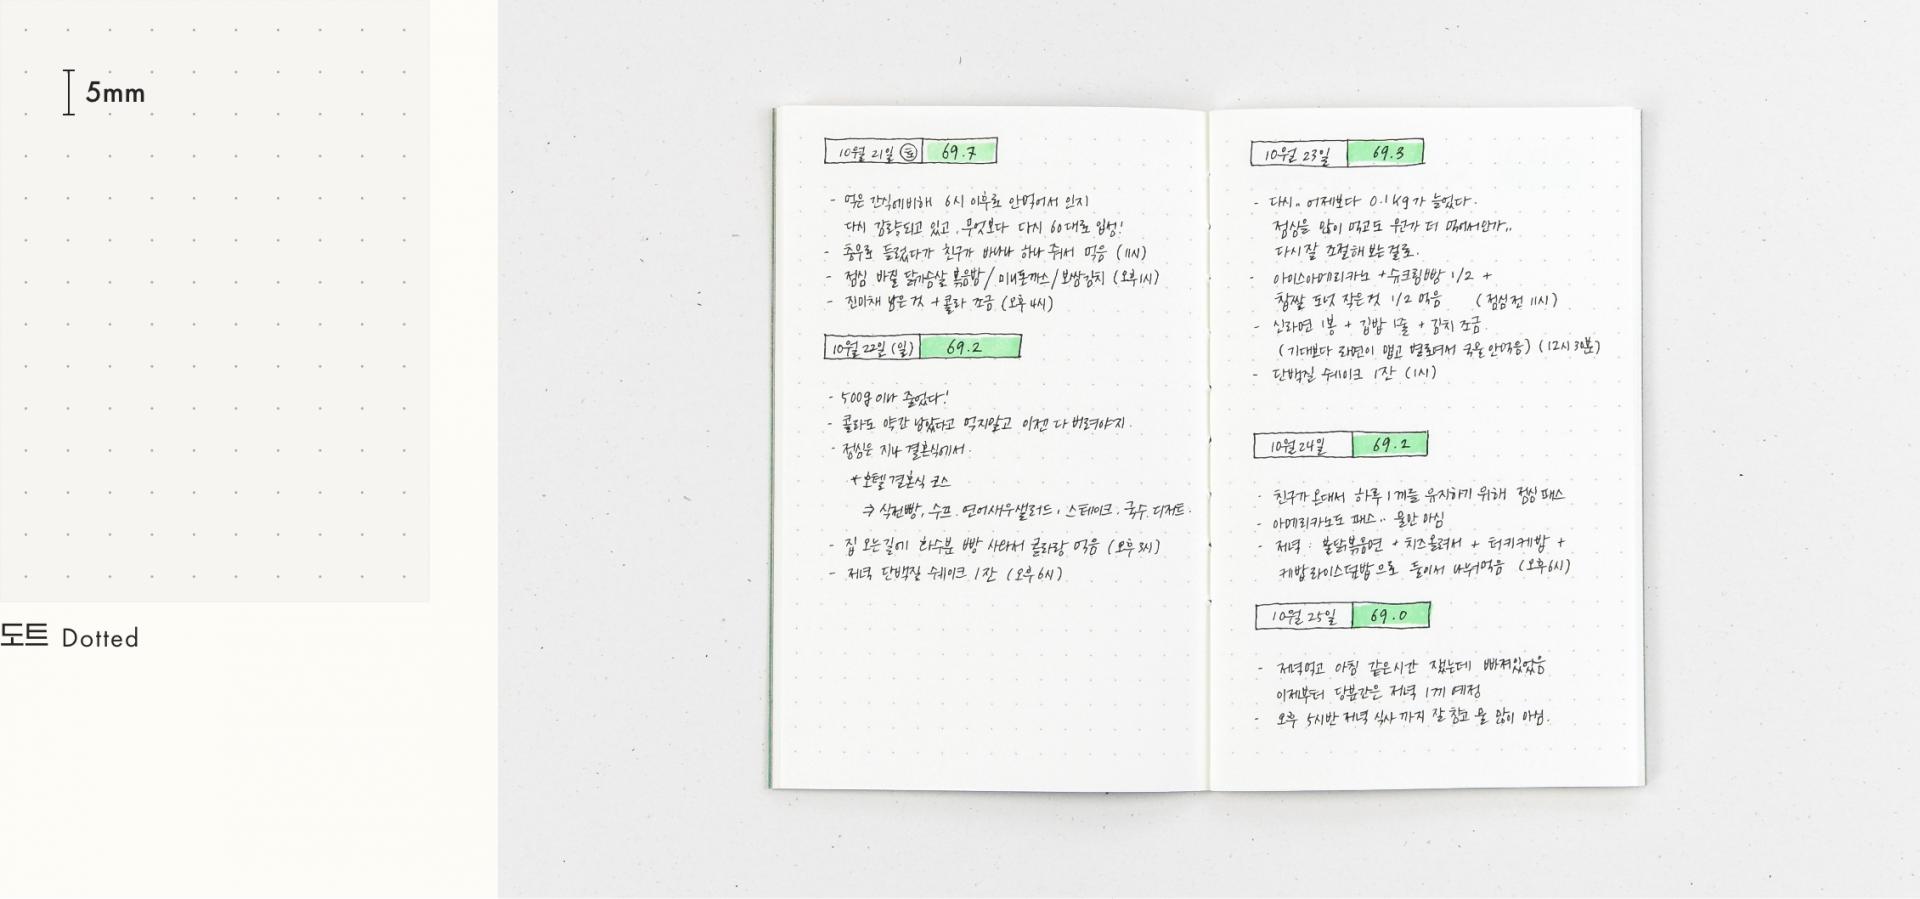 5mm
도트 Dotted
10월 21일 (토) 69.7
- 먹은 간식에비해 6시 이후로 안먹어서 인지
다시 감량되고 있고, 무엇보다 다시 60대로 입성!
- 충무로 들렀다가 친구가 바나나 하나 줘서 먹음 (11시)
- 점심 바질 닭가슴살 볶음밥/미니돈까스/보쌈김치 (오후1시)
- 진미채 남은것 + 콜라 조금 (오후4시)
10월 22일 (일) 69.2
- 500g이나 줄었다!
- 콜라도 약간 남았다고 먹지말고 이젠 다 버려야지.
- 점심은 지나 결혼식에서.
* 호텔 결혼식 코스
→ 식전빵, 수프, 연어새우샐러드, 스테이크, 국수, 디저트.
- 집 오는길에 화수분 빵 사와서 콜라랑 먹음 (오후3시)
- 저녁 단백질 쉐이크 1잔 (오후6시)
10월 23일 69.3
- 다시.. 어제보다 0.1kg가 늘었다.
점심을 많이 먹고도 뭔가 더 먹어서인가..
다시 잘 조절해보는걸로.
- 아이스아메리카노 + 슈크림빵 1/2 +
찹쌀 도넛 작은것 1/2 먹음 (점심전 11시)
- 신라면 1봉 + 김밥 1줄 + 김치 조금.
(기대보다 라면이 맵고 별로여서 국물 안먹음) (12시 30분)
- 단백질 쉐이크 1잔 (1시)
10월 24일 69.2
- 친구가 온대서 하루 1끼를 유지하기 위해 점심 패스
- 아메리카노도 패스.. 물만 마심
- 저녁 : 불닭볶음면 + 치즈올려서 + 터키케밥 +
케밥라이스덮밥으로 둘이서 나눠먹음 (오후6시)
10월 25일 69.0
- 저녁먹고 아침 같은시간 쟀는데 빠져있었음
이제부터 당분간은 저녁 1끼 예정
- 오후 5시반 저녁 식사까지 잘 참고 물 많이 마심.